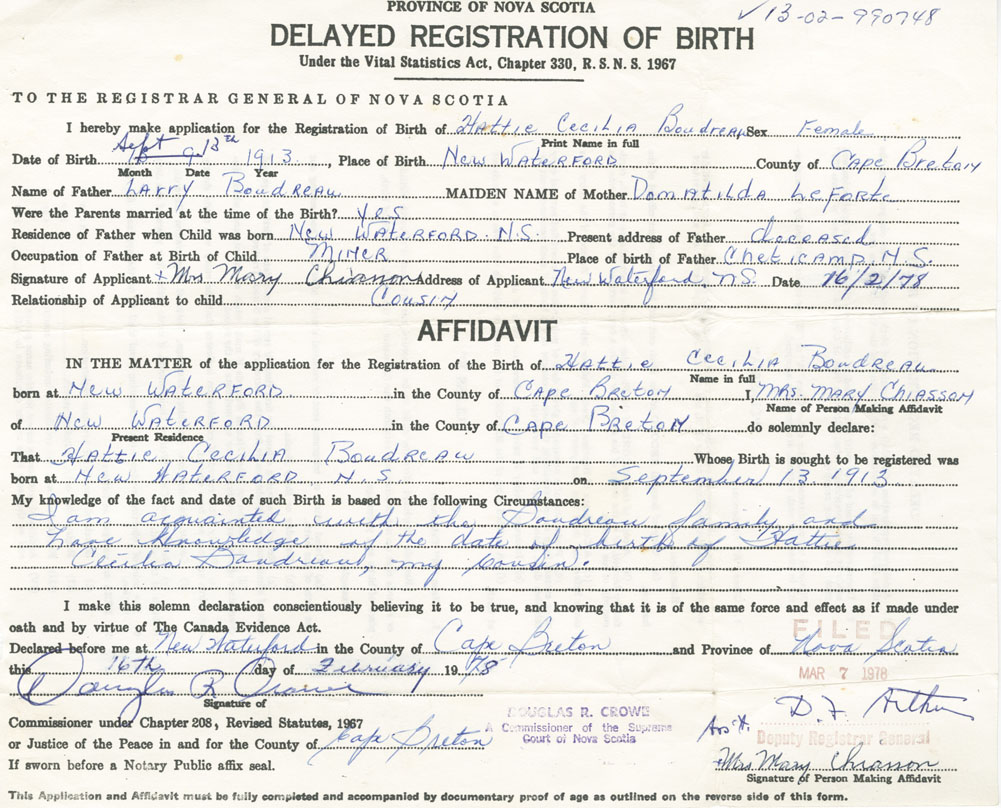 PROVINCE OF NOVA SCOTIA
✓13-02-990748
DELAYED REGISTRATION OF BIRTH
Under the Vital Statistics Act, Chapter 330, R.S.N.S. 1967
TO THE REGISTRAR GENERAL OF NOVA SCOTIA
I hereby make application for the Registration of Birth of Hattie Cecilia Boudreau Sex Female
Print Name in full
Date of Birth Sept 13th 1913, Place of Birth New Waterford County of Cape Breton
Month Date Year
Name of Father Larry Boudreau MAIDEN NAME of Mother Domatilda LeForte
Were the Parents married at the time of the Birth? Yes
Residence of Father when Child was born New Waterford N.S. Present address of Father deceased
Occupation of Father at Birth of Child Miner Place of birth of Father Cheticamp, N.S.
Signature of Applicant + Mrs Mary Chiasson Address of Applicant New Waterford, NS. Date 16/2/78
Relationship of Applicant to child Cousin
AFFIDAVIT
IN THE MATTER of the application for the Registration of the Birth of Hattie Cecilia Boudreau
Name in full
born at New Waterford in the County of Cape Breton I, Mrs. Mary Chiasson
Name of Person Making Affidavit
of New Waterford in the County of Cape Breton do solemnly declare:
Present Residence
That Hattie Cecilia Boudreau Whose Birth is sought to be registered was
born at New Waterford N.S. on September 13 1913
My knowledge of the fact and date of such Birth is based on the following Circumstances:
I am acquainted with the Boudreau family and
have knowledge of the date of birth of Hattie
Cecilia Boudreau, my cousin.
I make this solemn declaration conscientiously believing it to be true, and knowing that it is of the same force and effect as if made under
oath and by virtue of The Canada Evidence Act.
FILED
Declared before me at New Waterford in the County of Cape Breton and Province of Nova Scotia
this 16th day of February 1978
MAR 7 1978
Douglas R Crowe
Signature of
D. F. Arthur
Commissioner under Chapter 208, Revised Statutes, 1967
DOUGLAS R. CROWE
A Commissioner of the Supreme
Court of Nova Scotia
Deputy Registrar General
or Justice of the Peace in and for the County of Cape Breton
+ Mrs Mary Chiasson
If sworn before a Notary Public affix seal.
Signature of Person Making Affidavit
This Application and Affidavit must be fully completed and accompanied by documentary proof of age as outlined on the reverse side of this form.